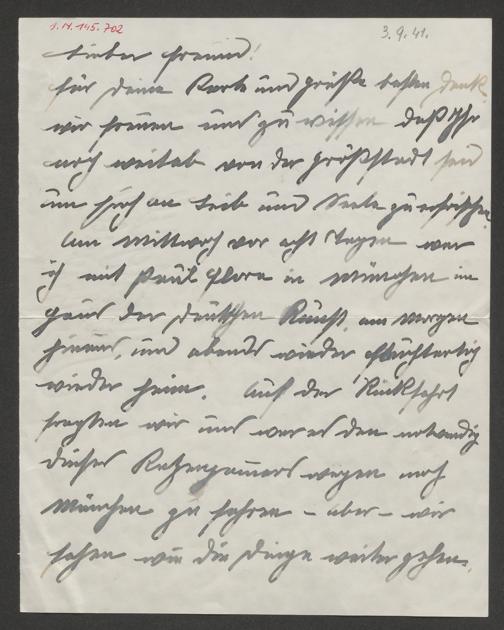 I.N. 145.702
3.9.41.
Lieber Freund!
für Deine Karte und Grüße besten Dank.
wir freuen uns zu wissen daß Ihr
noch weitab von der Großstadt seid
um sich an Leib und Seele zu erfrischen.
Am Mittwoch vor acht Tagen war
ich mit Paul Flora in München im
Haus der Deutschen Kunst, am Morgen
hinaus, und abends wieder fluchtartig
wieder heim. Auf der Rückfahrt
fragten wir uns war es den notwendig
dieses Katzenjammers wegen nach
München zu fahren – aber – wir
sahen wie die Dinge weiter gehen.